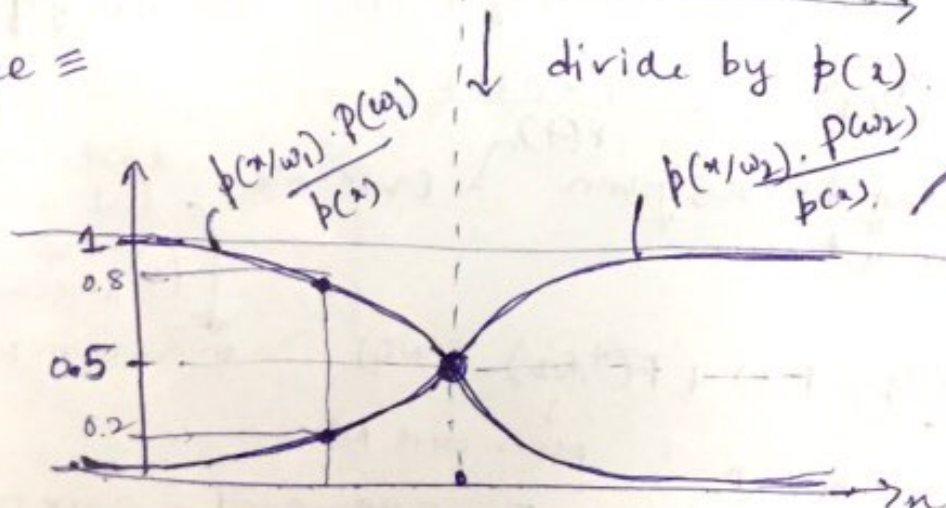 e ≡
↓ divide by p(x).
p(x/ω₁) · P(ω₁) / p(x)
p(x/ω₂) · P(ω₂) / p(x).
1
0.8
0.5
0.2
x